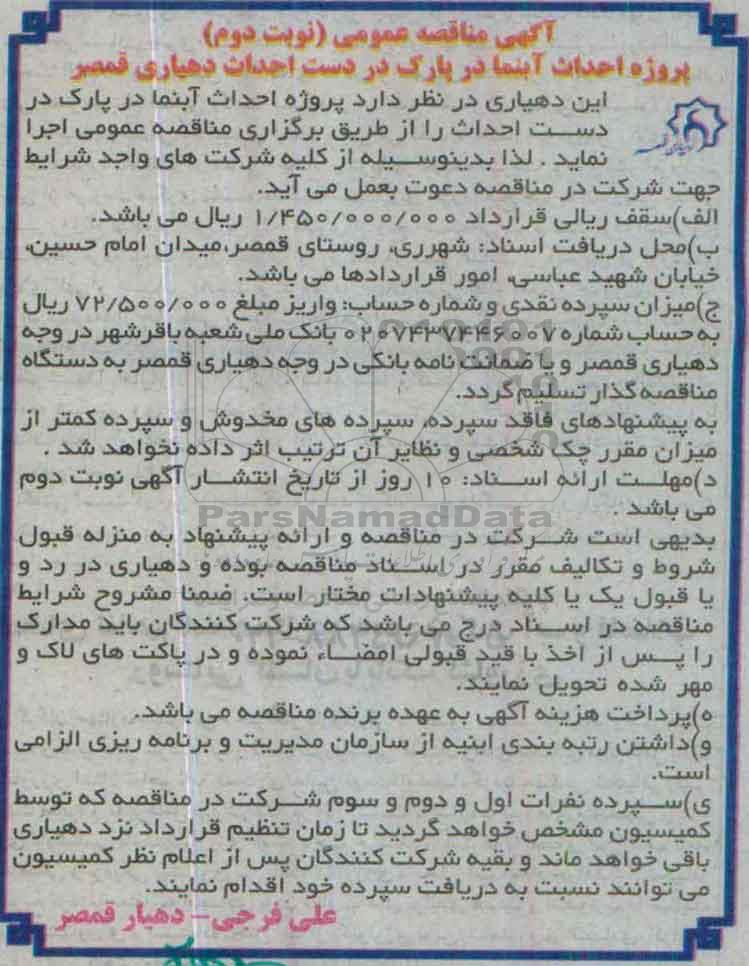 آگهی مناقصه عمومی (نوبت دوم)
پروژه احداث آبنما در پارک در دست احداث دهیاری قمصر
این دهیاری در نظر دارد پروژه احداث آبنما در پارک در
دست احداث را از طریق برگزاری مناقصه عمومی اجرا
نماید . لذا بدینوسیله از کلیه شرکت های واجد شرایط
جهت شرکت در مناقصه دعوت بعمل می آید.
الف)سقف ریالی قرارداد ۱/۴۵۰/۰۰۰/۰۰۰ ریال می باشد.
ب)محل دریافت اسناد: شهرری، روستای قمصر،میدان امام حسین،
خیابان شهید عباسی، امور قراردادها می باشد.
ج)میزان سپرده نقدی و شماره حساب: واریز مبلغ ۷۲/۵۰۰/۰۰۰ ریال
به حساب شماره ۰۲۰۷۴۳۷۴۴۶۰۰۷ بانک ملی شعبه باقرشهر در وجه
دهیاری قمصر و یا ضمانت نامه بانکی در وجه دهیاری قمصر به دستگاه
مناقصه گذار تسلیم گردد.
به پیشنهادهای فاقد سپرده، سپرده های مخدوش و سپرده کمتر از
میزان مقرر چک شخصی و نظایر آن ترتیب اثر داده نخواهد شد .
د)مهلت ارائه اسناد: ۱۰ روز از تاریخ انتشار آگهی نوبت دوم
می باشد .
ParsNamadData
بدیهی است شرکت در مناقصه و ارائه پیشنهاد به منزله قبول
شروط و تکالیف مقرر در اسناد مناقصه بوده و دهیاری در رد و
یا قبول یک یا کلیه پیشنهادات مختار است. ضمنا مشروح شرایط
مناقصه در اسناد درج می باشد که شرکت کنندگان باید مدارک
را پس از اخذ با قید قبولی امضاء نموده و در پاکت های لاک و
مهر شده تحویل نمایند.
ه)پرداخت هزینه آگهی به عهده برنده مناقصه می باشد.
و)داشتن رتبه بندی ابنیه از سازمان مدیریت و برنامه ریزی الزامی
است.
ی)سپرده نفرات اول و دوم و سوم شرکت در مناقصه که توسط
کمیسیون مشخص خواهد گردید تا زمان تنظیم قرارداد نزد دهیاری
باقی خواهد ماند و بقیه شرکت کنندگان پس از اعلام نظر کمیسیون
می توانند نسبت به دریافت سپرده خود اقدام نمایند.
علی فرجی- دهیار قمصر